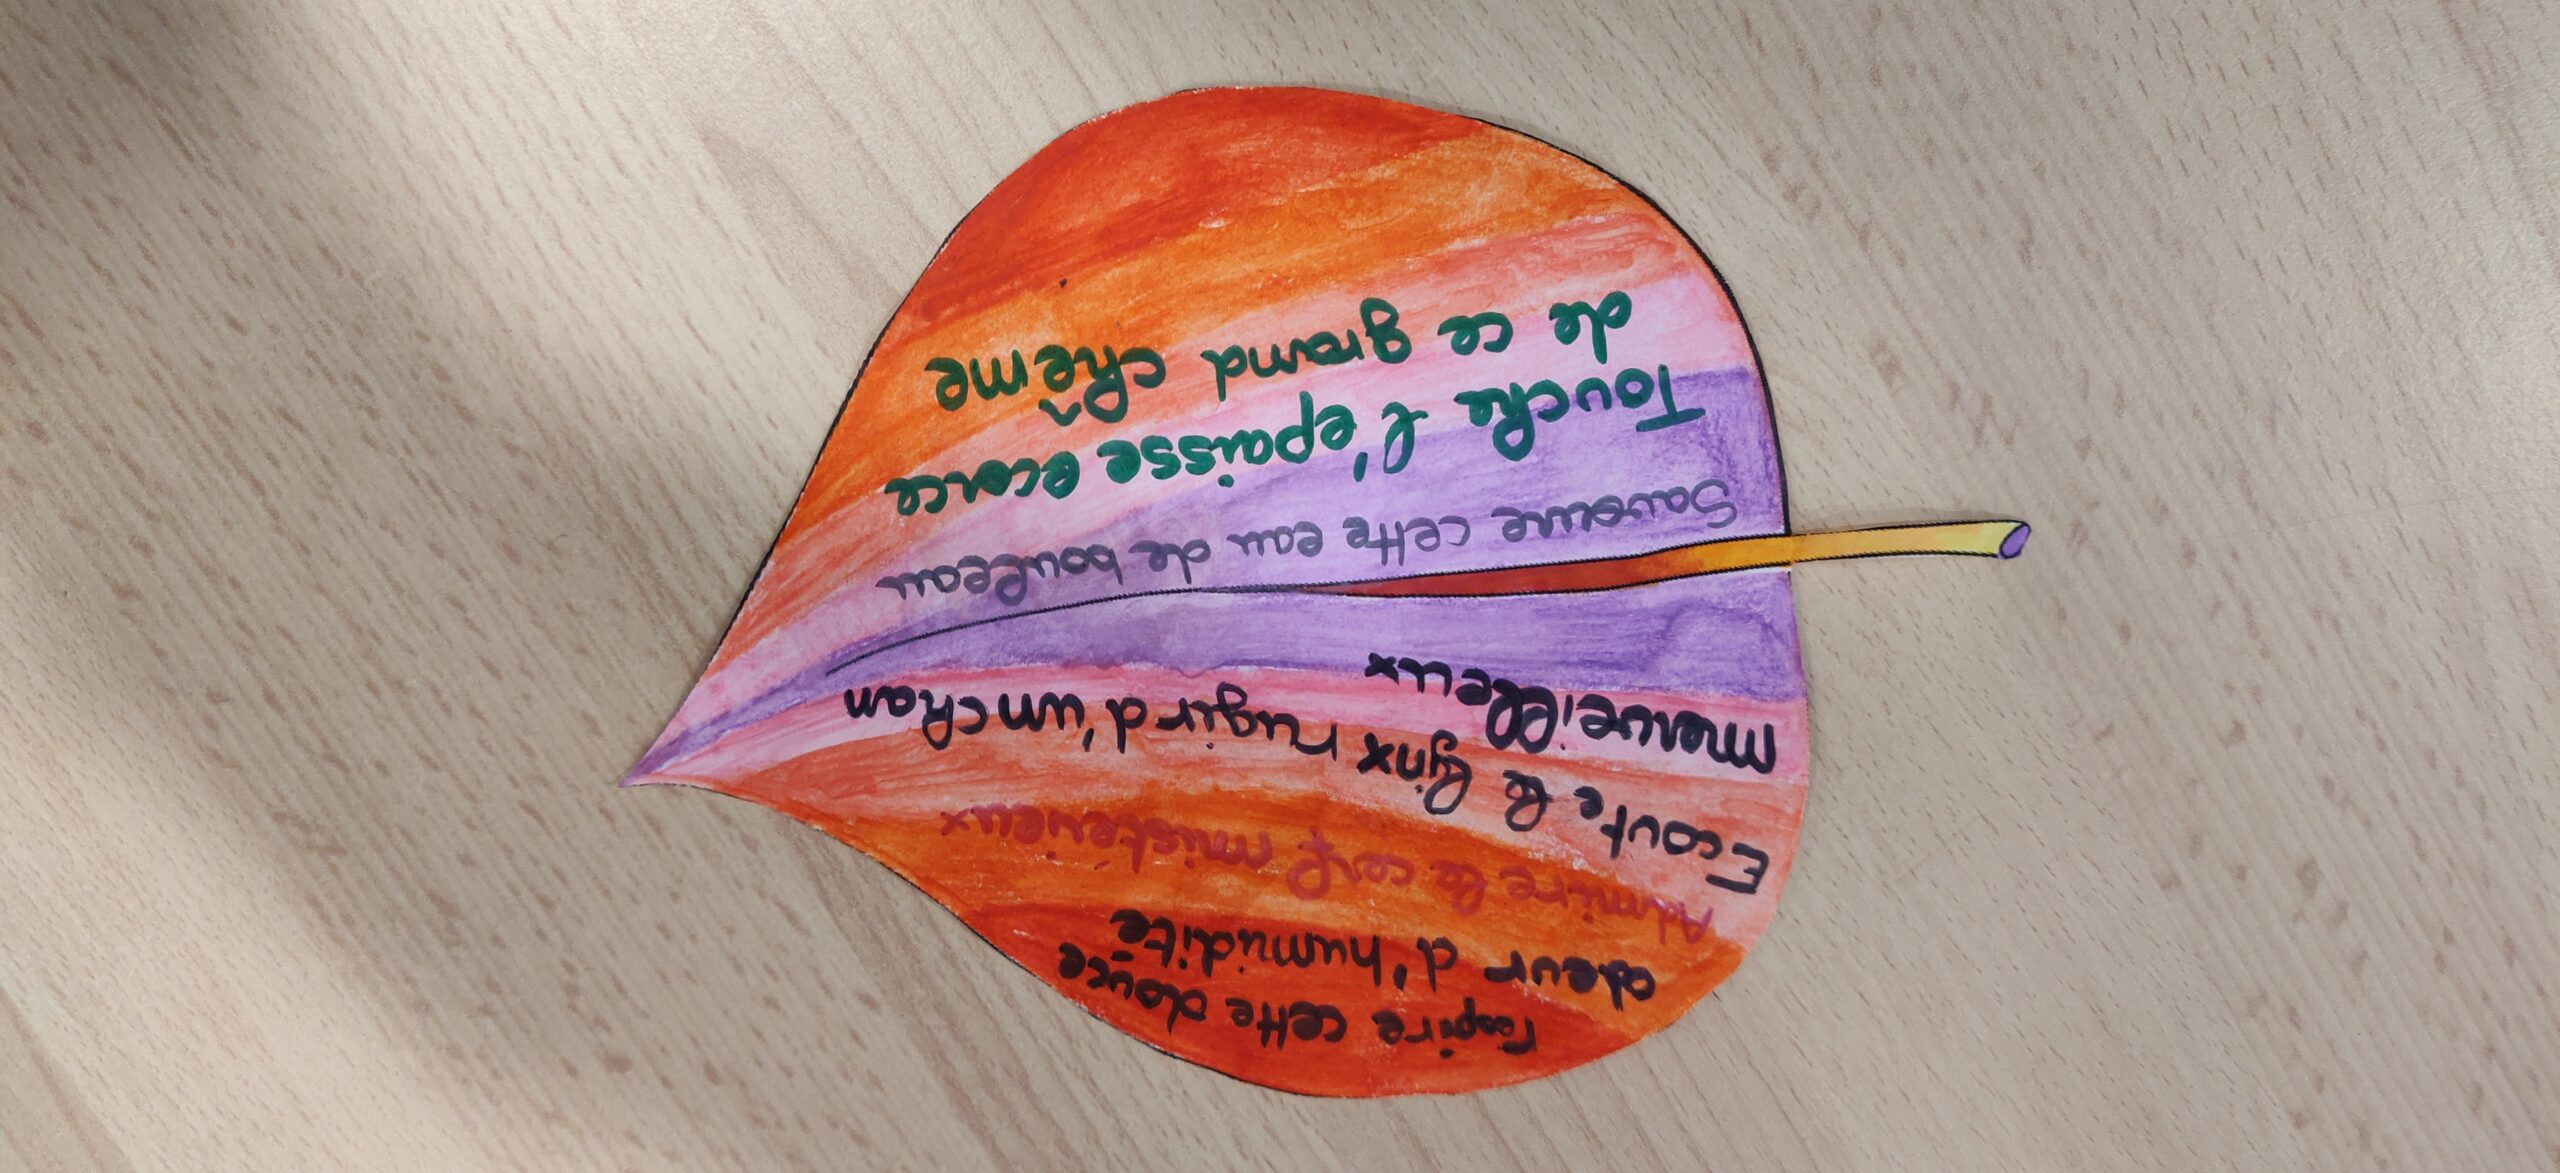 respire cette douce
odeur d'humidité
Admire le cerf mistérieux
Ecoute le lynx rugir d'un chan
merveilleux
Savoure cette eau de bouleau
Touche l'épaisse écorce
de ce grand chêne